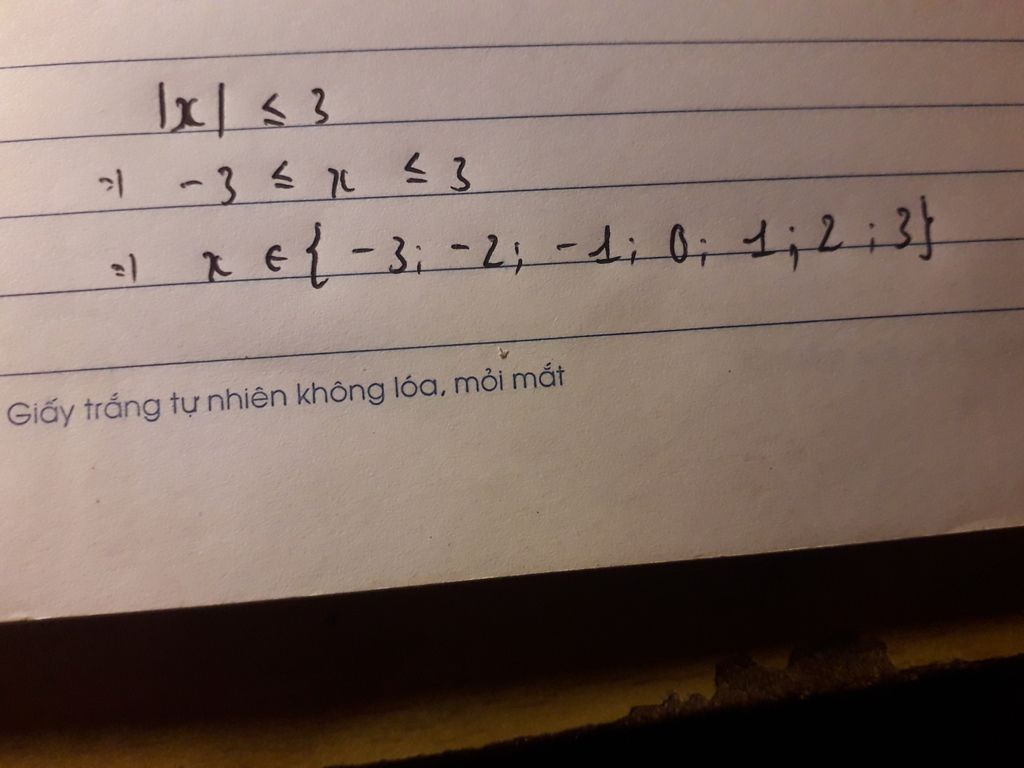 |x| ≤ 3
=> -3 ≤ x ≤ 3
=> x ∈ { -3; -2; -1; 0; 1; 2; 3}
Giấy trắng tự nhiên không lóa, mỏi mắt